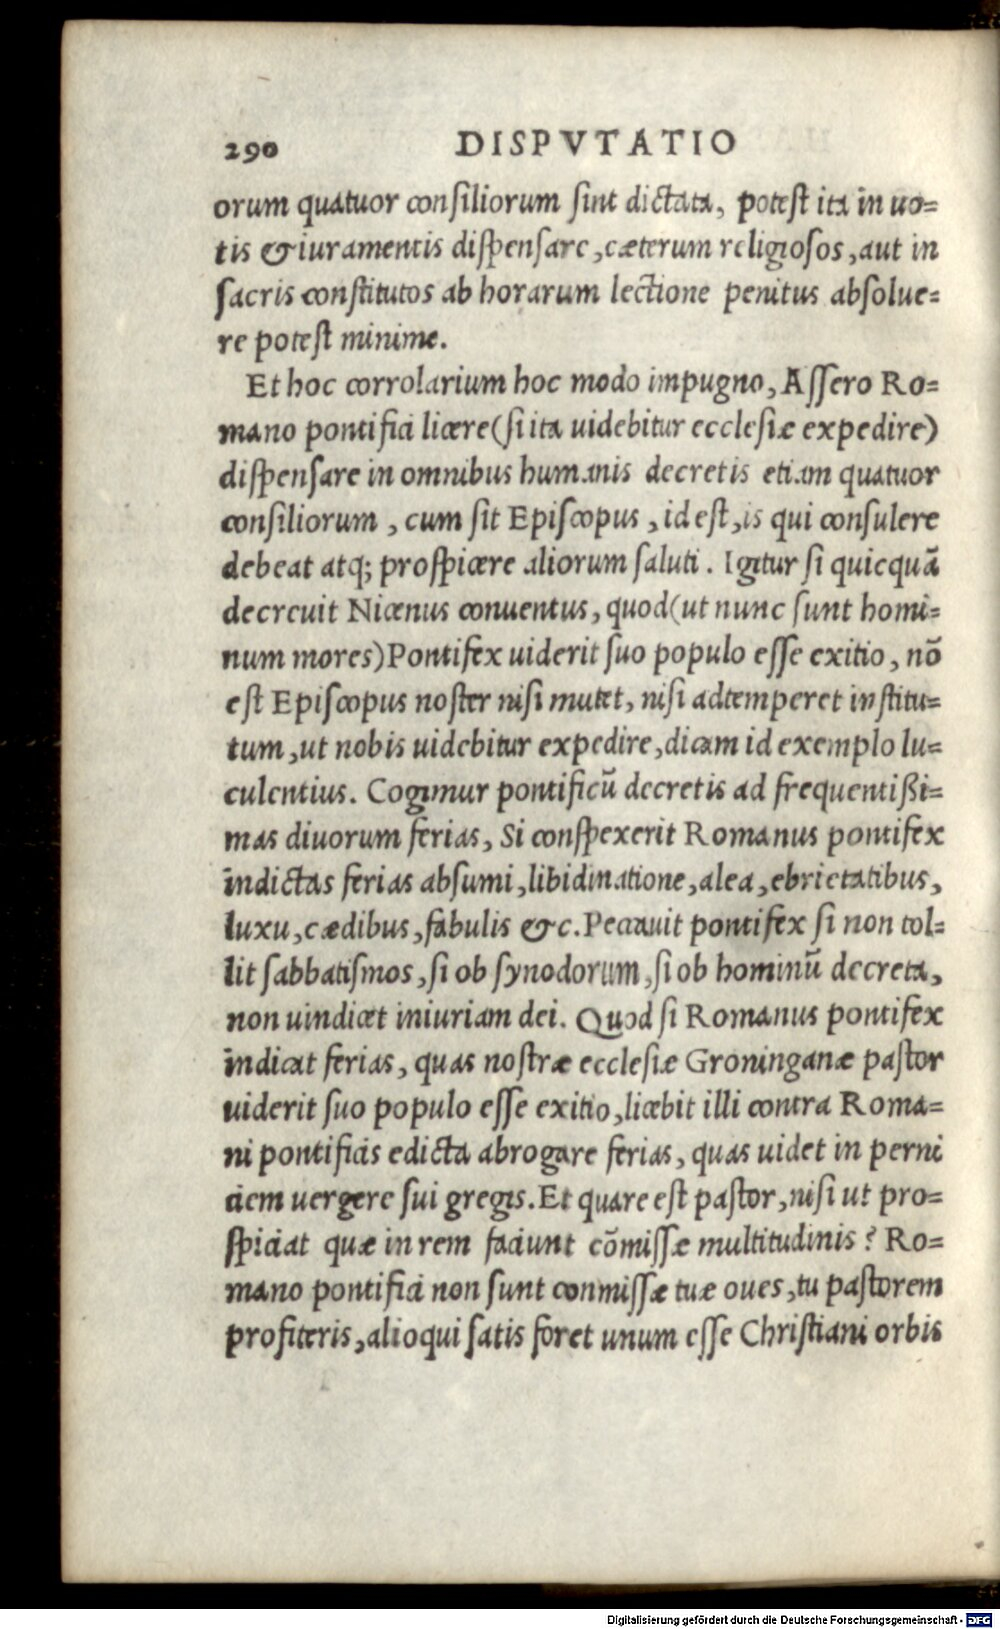 290 DISPVTATIO
orum quatuor consiliorum sint dictata, potest ita in uo=
tis & iuramentis dispensare, cæterum religiosos, aut in
sacris constitutos ab horarum lectione penitus absolue=
re potest minime.
Et hoc corrolarium hoc modo impugno, Assero Ro=
mano pontifici licere (si ita uidebitur ecclesiæ expedire)
dispensare in omnibus humanis decretis etiam quatuor
consiliorum, cum sit Episcopus, id est, is qui consulere
debeat atq; prospicere aliorum saluti. Igitur si quicquā
decreuit Nicenus conuentus, quod (ut nunc sunt homi=
num mores) Pontifex uiderit suo populo esse exitio, nō
est Episcopus noster nisi mutet, nisi adtemperet institu=
tum, ut nobis uidebitur expedire, dicam id exemplo lu=
culentius. Cogimur pontificū decretis ad frequentißi=
mas diuorum ferias, Si conspexerit Romanus pontifex
indictas ferias absumi, libidinatione, alea, ebrietatibus,
luxu, cædibus, fabulis &c. Peccauit pontifex si non tol=
lit sabbatismos, si ob synodorum, si ob hominū decreta,
non uindicet iniuriam dei. Quod si Romanus pontifex
indicat ferias, quas nostræ ecclesiæ Groninganæ pastor
uiderit suo populo esse exitio, licebit illi contra Roma=
ni pontificis edicta abrogare ferias, quas uidet in perni
ciem uergere sui gregis. Et quare est pastor, nisi ut pro=
spiciat quæ in rem faciunt cōmissæ multitudinis? Ro=
mano pontifici non sunt conmissæ tuæ oues, tu pastorem
profiteris, alioqui satis foret unum esse Christiani orbis
Digitalisierung gefördert durch die Deutsche Forschungsgemeinschaft - DFG